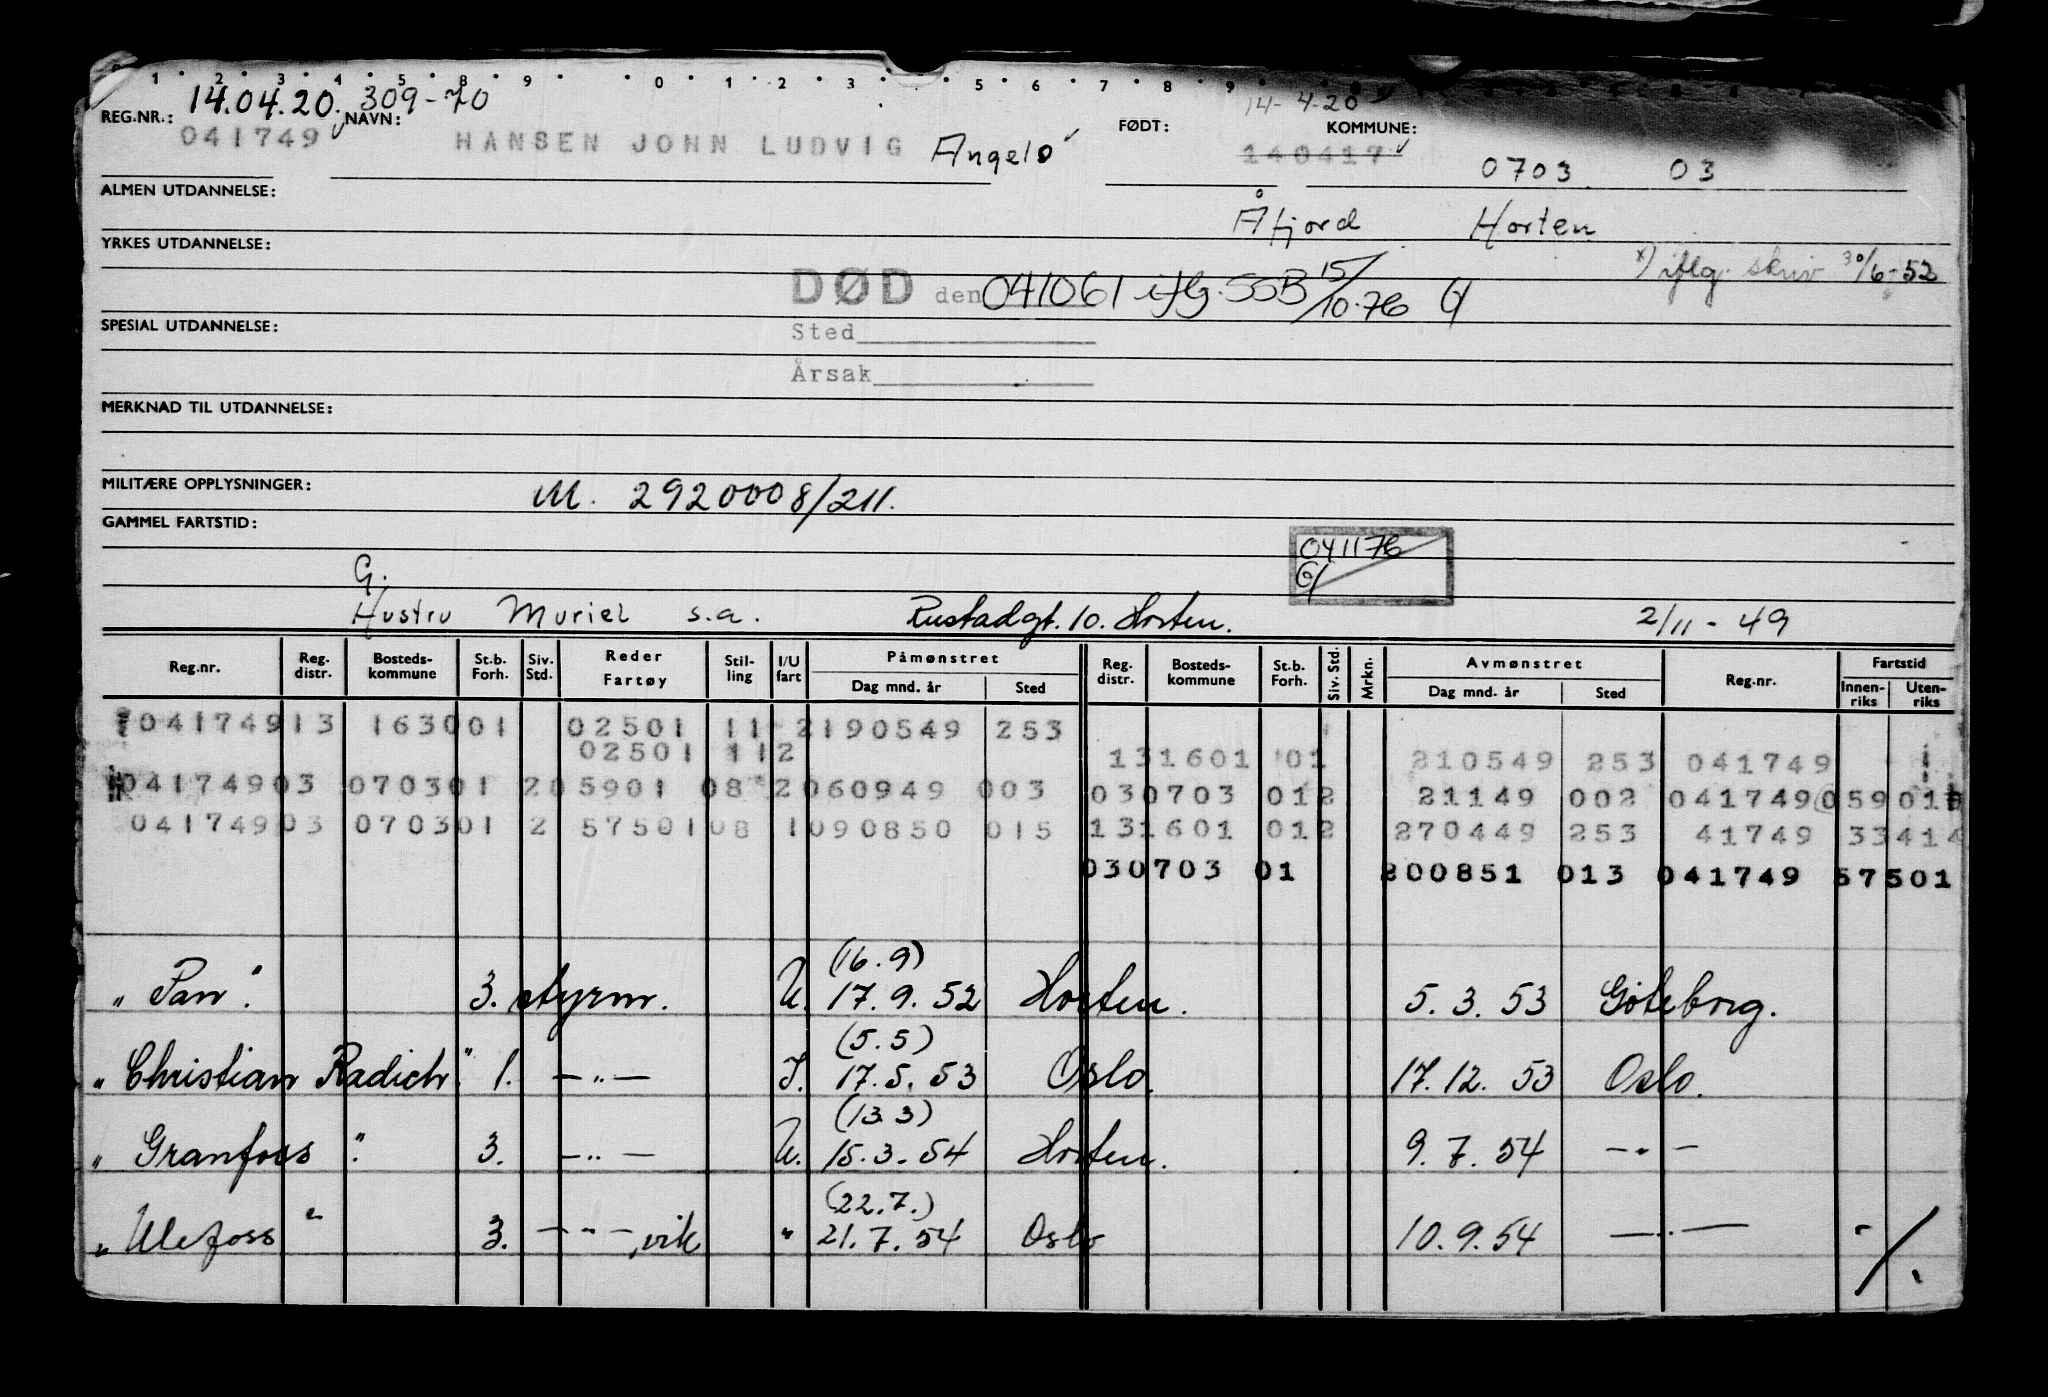 1 2 3 4 5 8 9 0 1 2 3 5 6 7 8 9
REG.NR.: 14.04.20. 309-70 NAVN: FØDT: 14-4-20 KOMMUNE:
041749 HANSEN JOHN LUDVIG Angelo 140417 0703 03
ALMEN UTDANNELSE: Åfjord Horten
YRKES UTDANNELSE: x) iflg. skriv 30/6-52
DØD den 041061 iflg. SSB 15/10-76 G
SPESIAL UTDANNELSE: Sted
Årsak
MERKNAD TIL UTDANNELSE:
MILITÆRE OPPLYSNINGER: M. 2920008/211.
GAMMEL FARTSTID:
041176
G/
G.
Hustru Muriel s.a. Rustadgt. 10. Horten. 2/11-49
Reg.nr. Reg. distr. Bosteds-kommune St.b. Forh. Siv. Std. Reder Fartøy Stil-ling I/U fart Påmønstret Dag mnd. år Sted Reg. distr. Bosteds-kommune St.b. Forh. Siv. Std. Mrkn. Avmønstret Dag mnd. år Sted Reg.nr. Fartstid Innen-riks Uten-riks
04174913 163001 02501 11 2190549 253
02501 112 131601 01 210549 253 041749 1
04174903 070301 205901 08 2060949 003 030703 012 21149 002 041749 05901
04174903 070301 2 5750108 1090850 015 131601 012 270449 253 41749 33414
030703 01 200851 013 041749 57501
(16.9)
"Pan". 3. styrm. U. 17.9.52 Horten. 5.3.53 Göteborg.
(5.5)
"Christian Radich". 1. —"— I. 17.5.53 Oslo. 17.12.53 Oslo.
(13.3)
"Granfoss". 3. —"— U. 15.3.54 Horten. 9.7.54 —"—
(22.7.)
"Ulefoss" 3. —"—, vik " 21.7.54 Oslo 10.9.54 —"— ./.